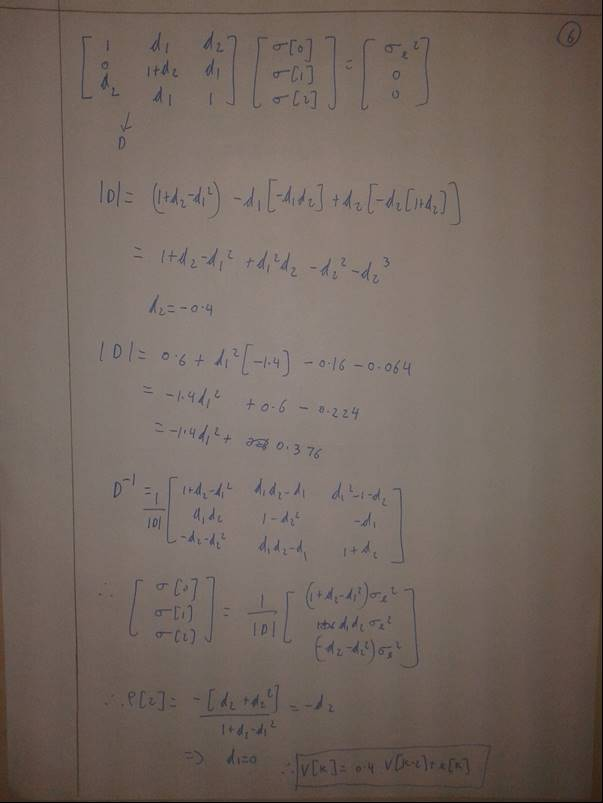 6
[ 1 d₁ d₂ ] [ σ[0] ] = [ σₑ² ]
[ 0 1+d₂ d₁ ] [ σ[1] ] [ 0 ]
[ d₂ d₁ 1 ] [ σ[2] ] [ 0 ]
↓
D
|D| = (1+d₂-d₁²) - d₁[-d₁d₂] + d₂[-d₂[1+d₂]]
= 1+d₂-d₁² + d₁²d₂ - d₂² - d₂³
d₂ = -0.4
|D| = 0.6 + d₁²[-1.4] - 0.16 - 0.064
= -1.4d₁² + 0.6 - 0.224
= -1.4d₁² + 0.376
D⁻¹ = 1/|D| [ 1+d₂-d₁² d₁d₂-d₁ d₁²-1-d₂ ]
[ d₁d₂ 1-d₂² -d₁ ]
[ -d₂-d₂² d₁d₂-d₁ 1+d₂ ]
∴ [ σ[0] ] = 1/|D| [ (1+d₂-d₁²)σₑ² ]
[ σ[1] ] [ d₁d₂σₑ² ]
[ σ[2] ] [ (-d₂-d₂²)σₑ² ]
∴ ρ[2] = -[d₂+d₂²] / 1+d₂-d₁² = -d₂
⇒ d₁=0 ∴ V[k] = 0.4 V[k-2] + e[k]